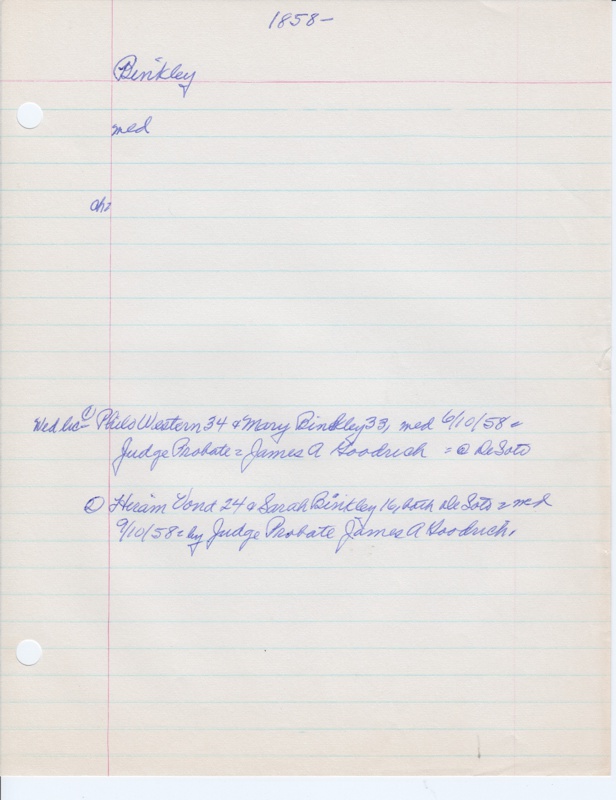 1858-
Binkley
med
ch:
Wed Lic - 1) Philo Western 34 & Mary Binkley 33, med 6/10/58 =
Judge Probate = James A Goodrich = @ DeSoto
Hiram Vond 24 & Sarah Binkley 16, both DeSoto = med
9/10/58 = by Judge Probate James A Goodrich.